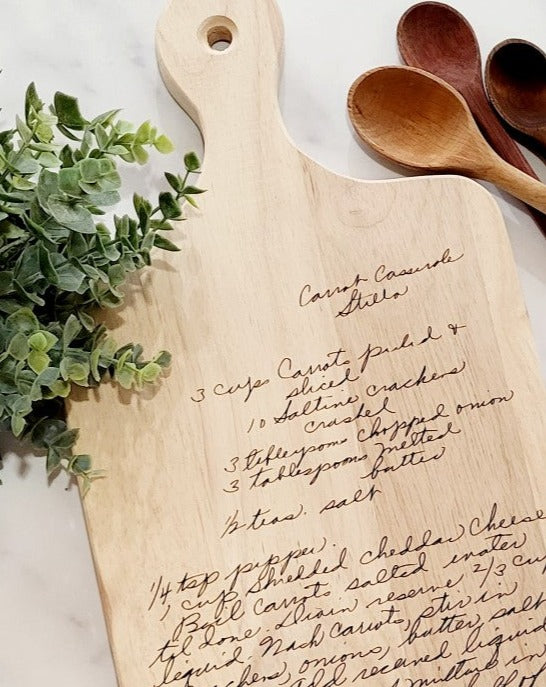 Carrot Casserole
Stilla
3 cups Carrots peeled &
sliced
10 Saltine crackers
crashed
3 tableypoons chopped onion
3 tablespoons melted
butter
1/2 teas. salt
1/4 tsp pepper.
1 cup Shredded cheddar Cheese
Boil carrots salted water
til done. Drain reserve 2/3 cup
liquid. Mash carrots, stir in
crackers, onions, butter, salt
Add reserved liquid
mixture in